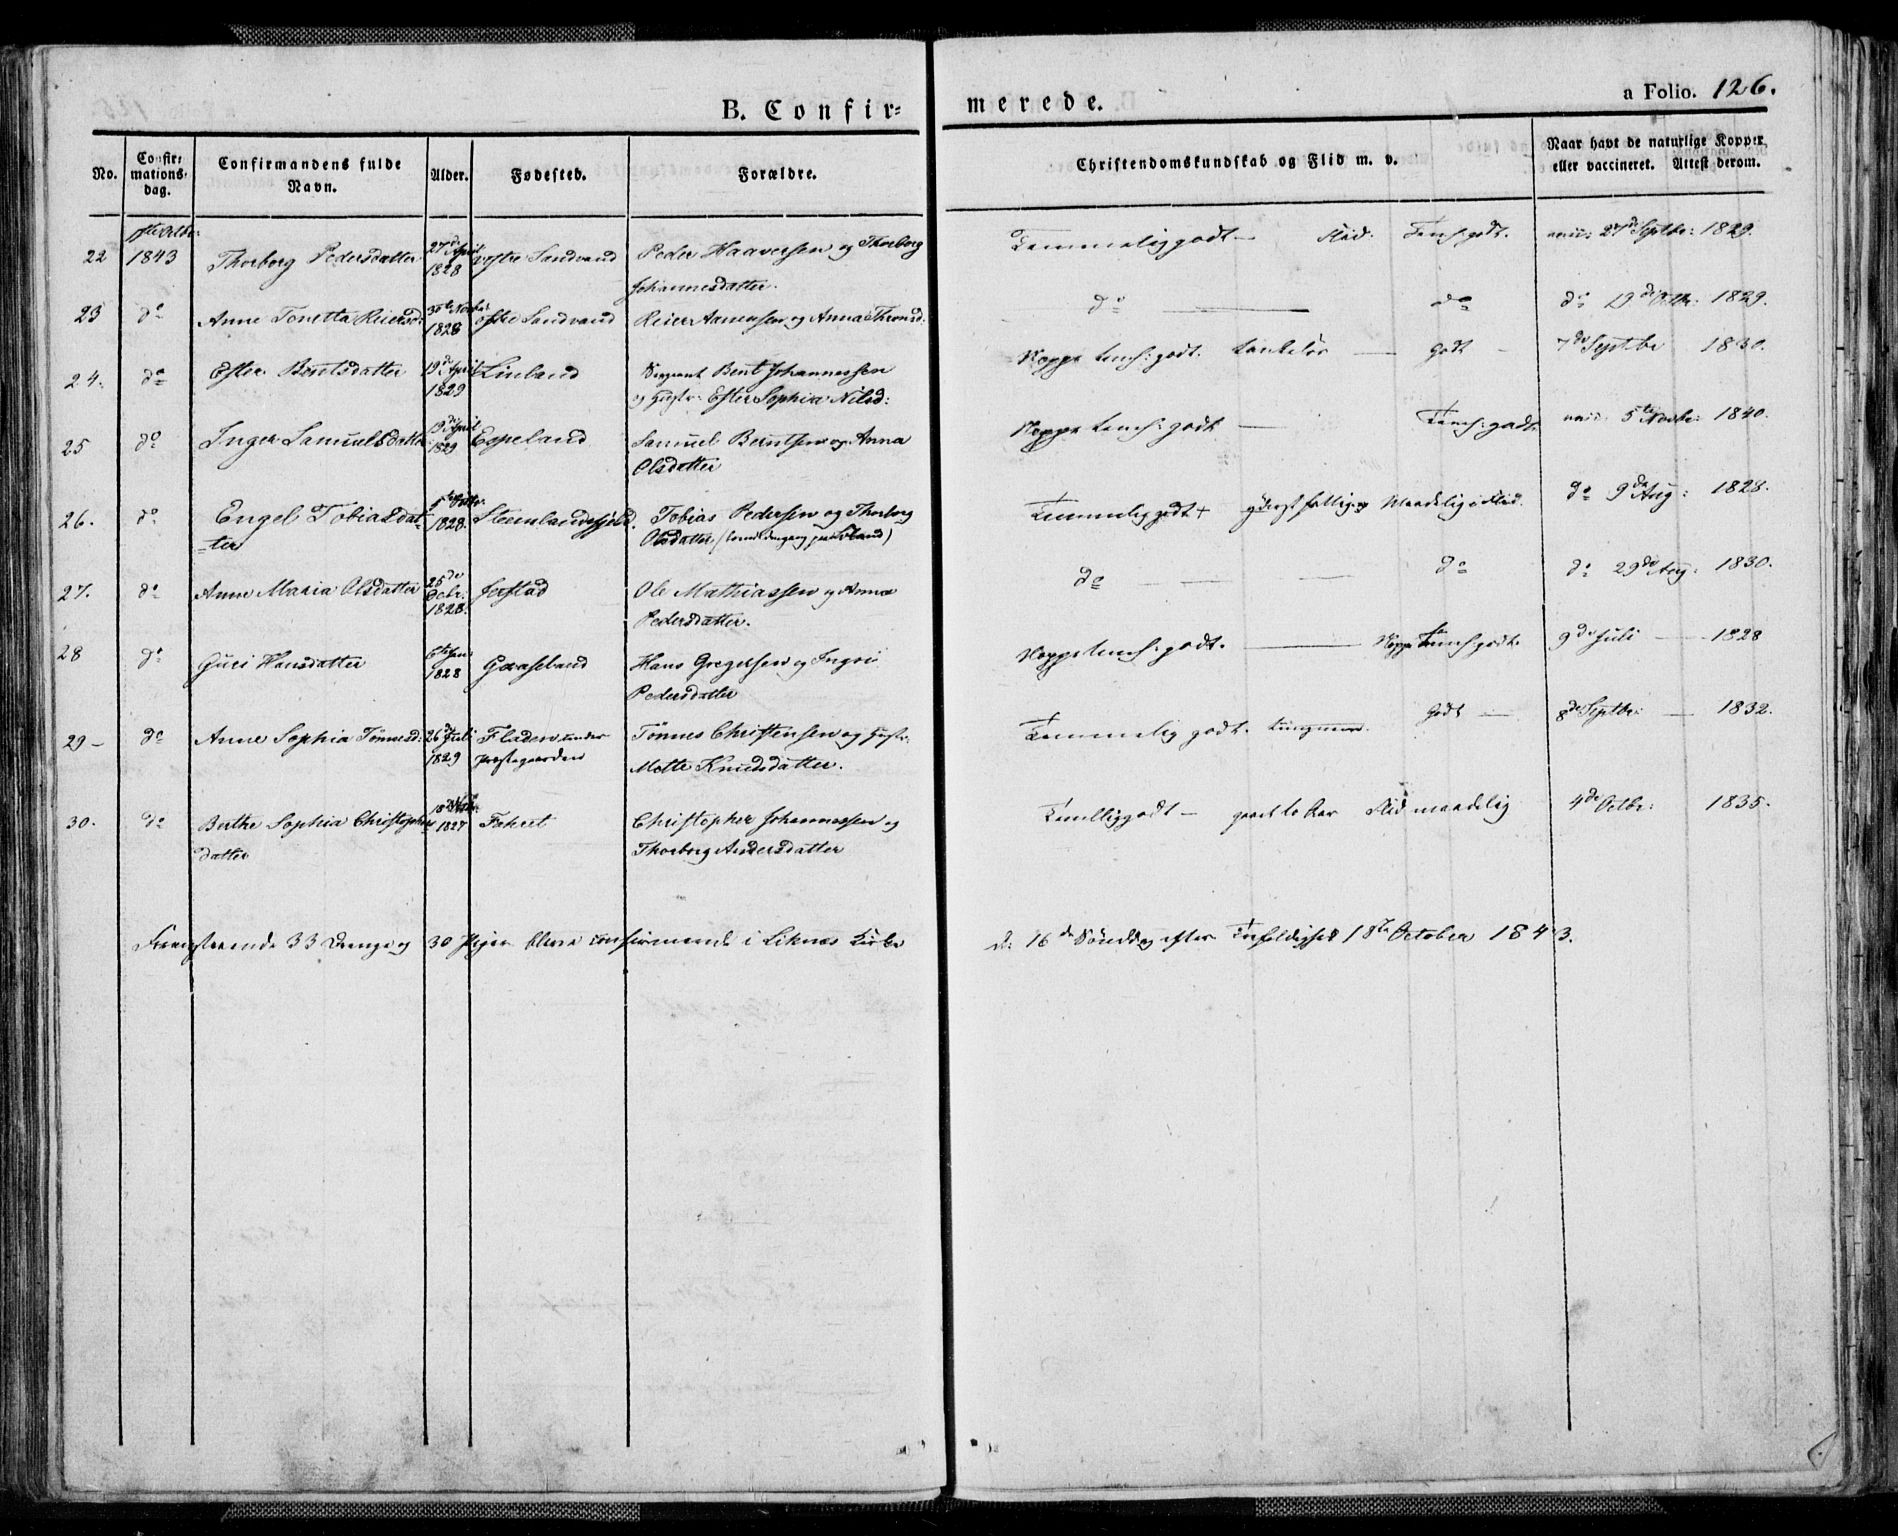 B. Confir=
merede.
a Folio. 126.
No.
Confir:
mations-
dag.
Confirmandens fulde
Navn.
Alder.
Fødested.
Forældre.
Christendomskundskab og Flid m. v.
Naar havt de naturlige Kopper,
eller vaccineret. Attest derom.
22 1843 Thorborg Pedersdatter 27de April 1828 Sandvand Peder Haaversen og Thorborg
Johannesdatter.
Temmelig godt — Flid. Temh: godt. 27de Septbr: 1829.
23 do Anne Tonetta Reiersd: 1828 Sandvand Reier Aanensen og Anna Thronsd.
do — do do 19de Octbr: 1829.
24. do Ester Berntsdatter 19de April 1829 Linland Sergeant Bent Johannessen
og Hustr: Ester Sophia Nilsd:
Neppe temh: godt. — Godt — 7de Septbr 1830.
25 do Inger Samuelsdatter 19de April 1829 Espeland Samuel Berntsen og Anna
Olsdatter
Neppe temh: godt — Temh: godt 5te Novbr: 1840.
26. do Engel Tobiasdat-
=ter
1828. Steenlandsfjeld. Tobias Pedersen og Thorborg
Olsdatter
Temmelig godt yderst fattig Maadelig Flid. do 9de Aug: 1828.
27. do Anne Maria Olsdatter 25de Febr. 1828. Jerstad Ole Mathiassen og Anna
Pedersdatter.
do — — — do do 29de Aug: 1830.
28 do Guri Hansdatter 6te 1828 Gaaseland Hans Gregersen og Ingri
Pedersdatter
Neppe temh: godt. — Neppe temh: godt. 9de Juli — 1828
29 — do Anne Sophia Tønnesd: 26de Juli 1829 Fladen under
Præstegaarden
Tønnes Christensen og Hustr:
Mette Knudsdatter.
Temmelig godt. — Godt — 8de Septbr: — 1832.
30. do Berthe Sophia Christophers
datter
1827 Christopher Johannessen og
Thorborg Andersdatter
Temmelig godt — Flid maadelig 4de Octbr: 1835.
Foranstaaende 33 Drenge og 30 Piger bleve confirmerede i Liknes Kirke
d: 16de Søndag efter Trefoldighed 1ste October 1843.